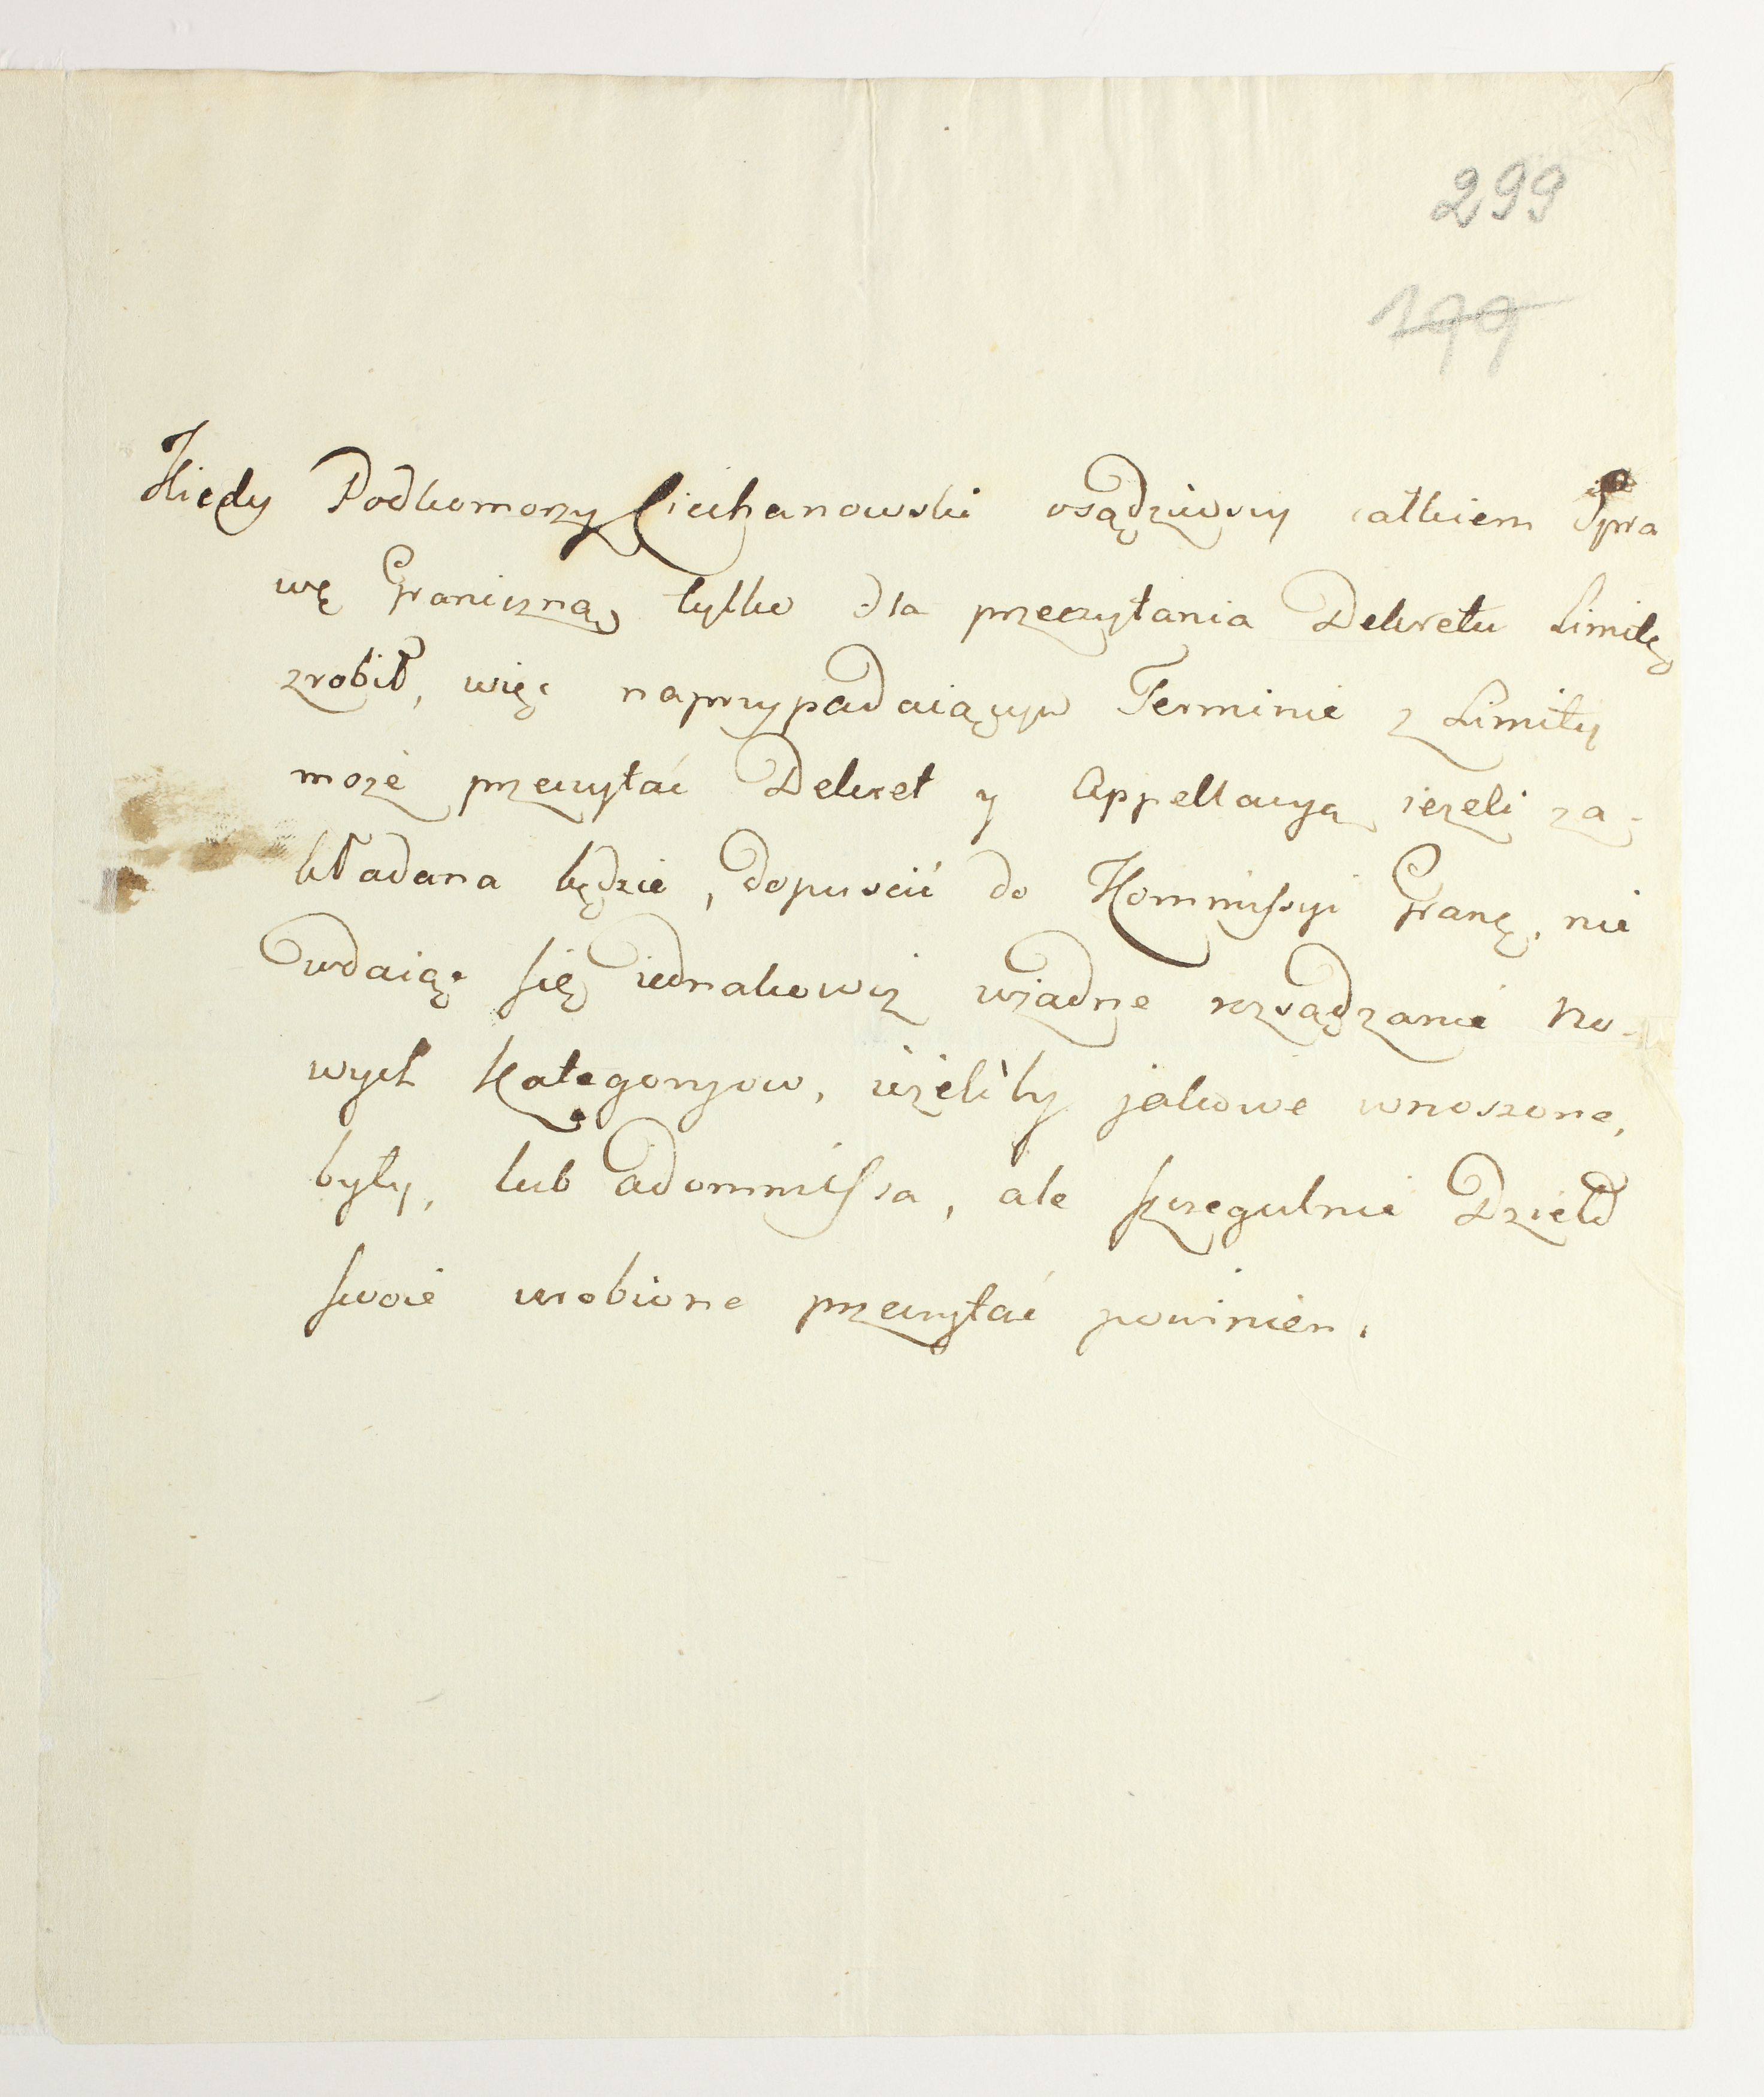 299
199
Kiedy Podkomorzy Ciechanowski osądziwszy całkiem Spra
wę Graniczną tylko dla przeczytania Dekretu Limitę
zrobił, więc naprzypadaiącym Terminie z Limity
może przeczytać Dekret y Appellacyą ieżeli za-
kładana będzie, dopuscić do Kommissyi Granę, nie
wdaiąc się iednakowiż wżadne rozsądzanie no-
wych Kategoryow, ieżeliby jakowe wnoszone,
były, lub adommissa, ale szczegulnie Dzieło
swoie urobione przeczytać powinien.